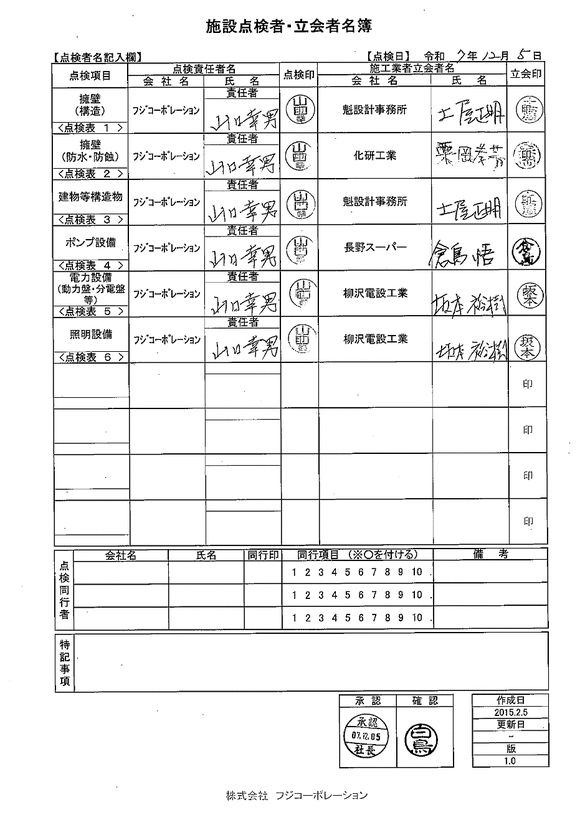 施設点検者・立会者名簿
【点検者名記入欄】 【点検日】 令和 7年 12月 5日
点検項目 点検責任者名 点検印 施工業者立会者名 立会印
会社名 氏名 会社名 氏名
擁壁 責任者
(構造) フジコーポレーション 山口幸男 魁設計事務所 土屋正明
<点検表 1 >
擁壁 責任者
(防水・防蝕) フジコーポレーション 山口幸男 化研工業
<点検表 2 >
建物等構造物 責任者
フジコーポレーション 山口幸男 魁設計事務所 土屋正明
<点検表 3 >
ポンプ設備 責任者
フジコーポレーション 山口幸男 長野スーパー 倉島 悟
<点検表 4 >
電力設備 責任者
(動力盤・分電盤等) フジコーポレーション 山口幸男 柳沢電設工業 坂本 裕樹 坂本
<点検表 5 >
照明設備 責任者
フジコーポレーション 山口幸男 柳沢電設工業 坂本 裕樹 坂本
<点検表 6 >
印
印
印
印
点検同行者 会社名 氏名 同行印 同行項目 (※〇を付ける) 備考
1 2 3 4 5 6 7 8 9 10 .
1 2 3 4 5 6 7 8 9 10 .
1 2 3 4 5 6 7 8 9 10 .
特記事項
承認 確認
承認 07.12.05 社長 白鳥
作成日
2015.2.5
更新日
-
版
1.0
株式会社 フジコーポレーション